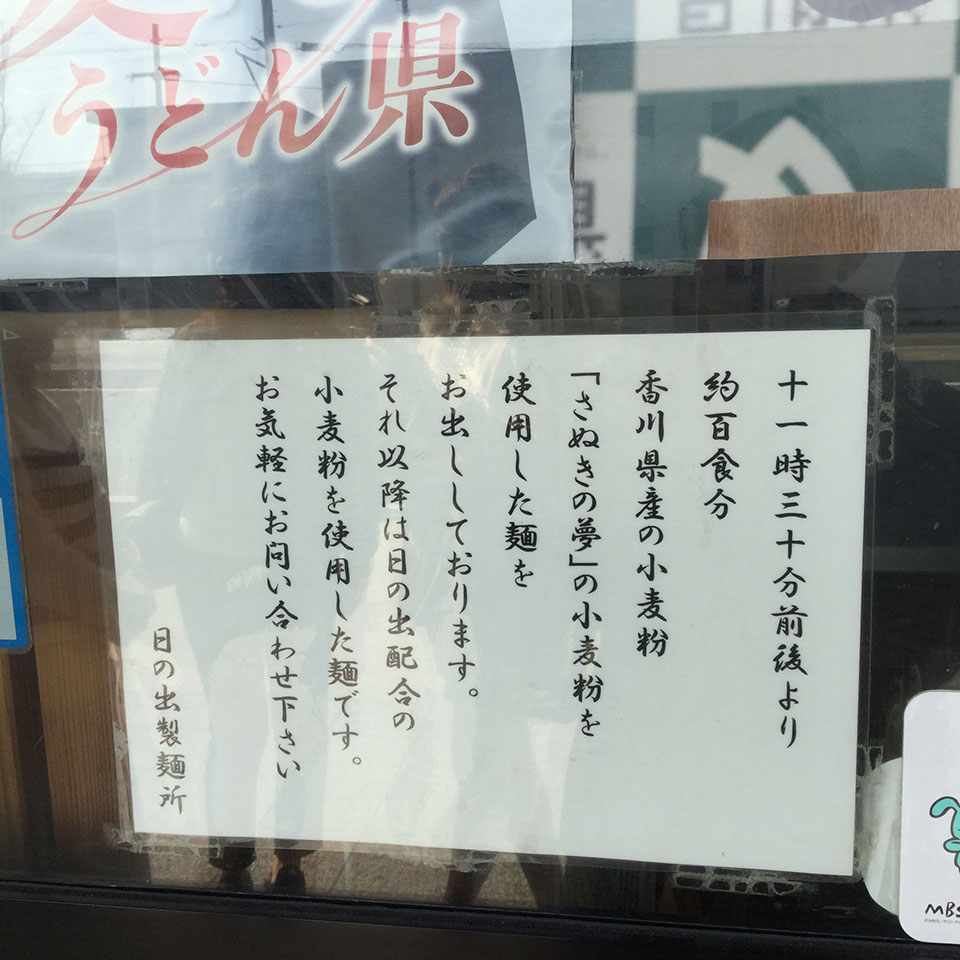 うどん県
十一時三十分前後より
約百食分
香川県産の小麦粉
「さぬきの夢」の小麦粉を
使用した麺を
お出ししております。
それ以降は日の出配合の
小麦粉を使用した麺です。
お気軽にお問い合わせ下さい
日の出製麺所
MBS